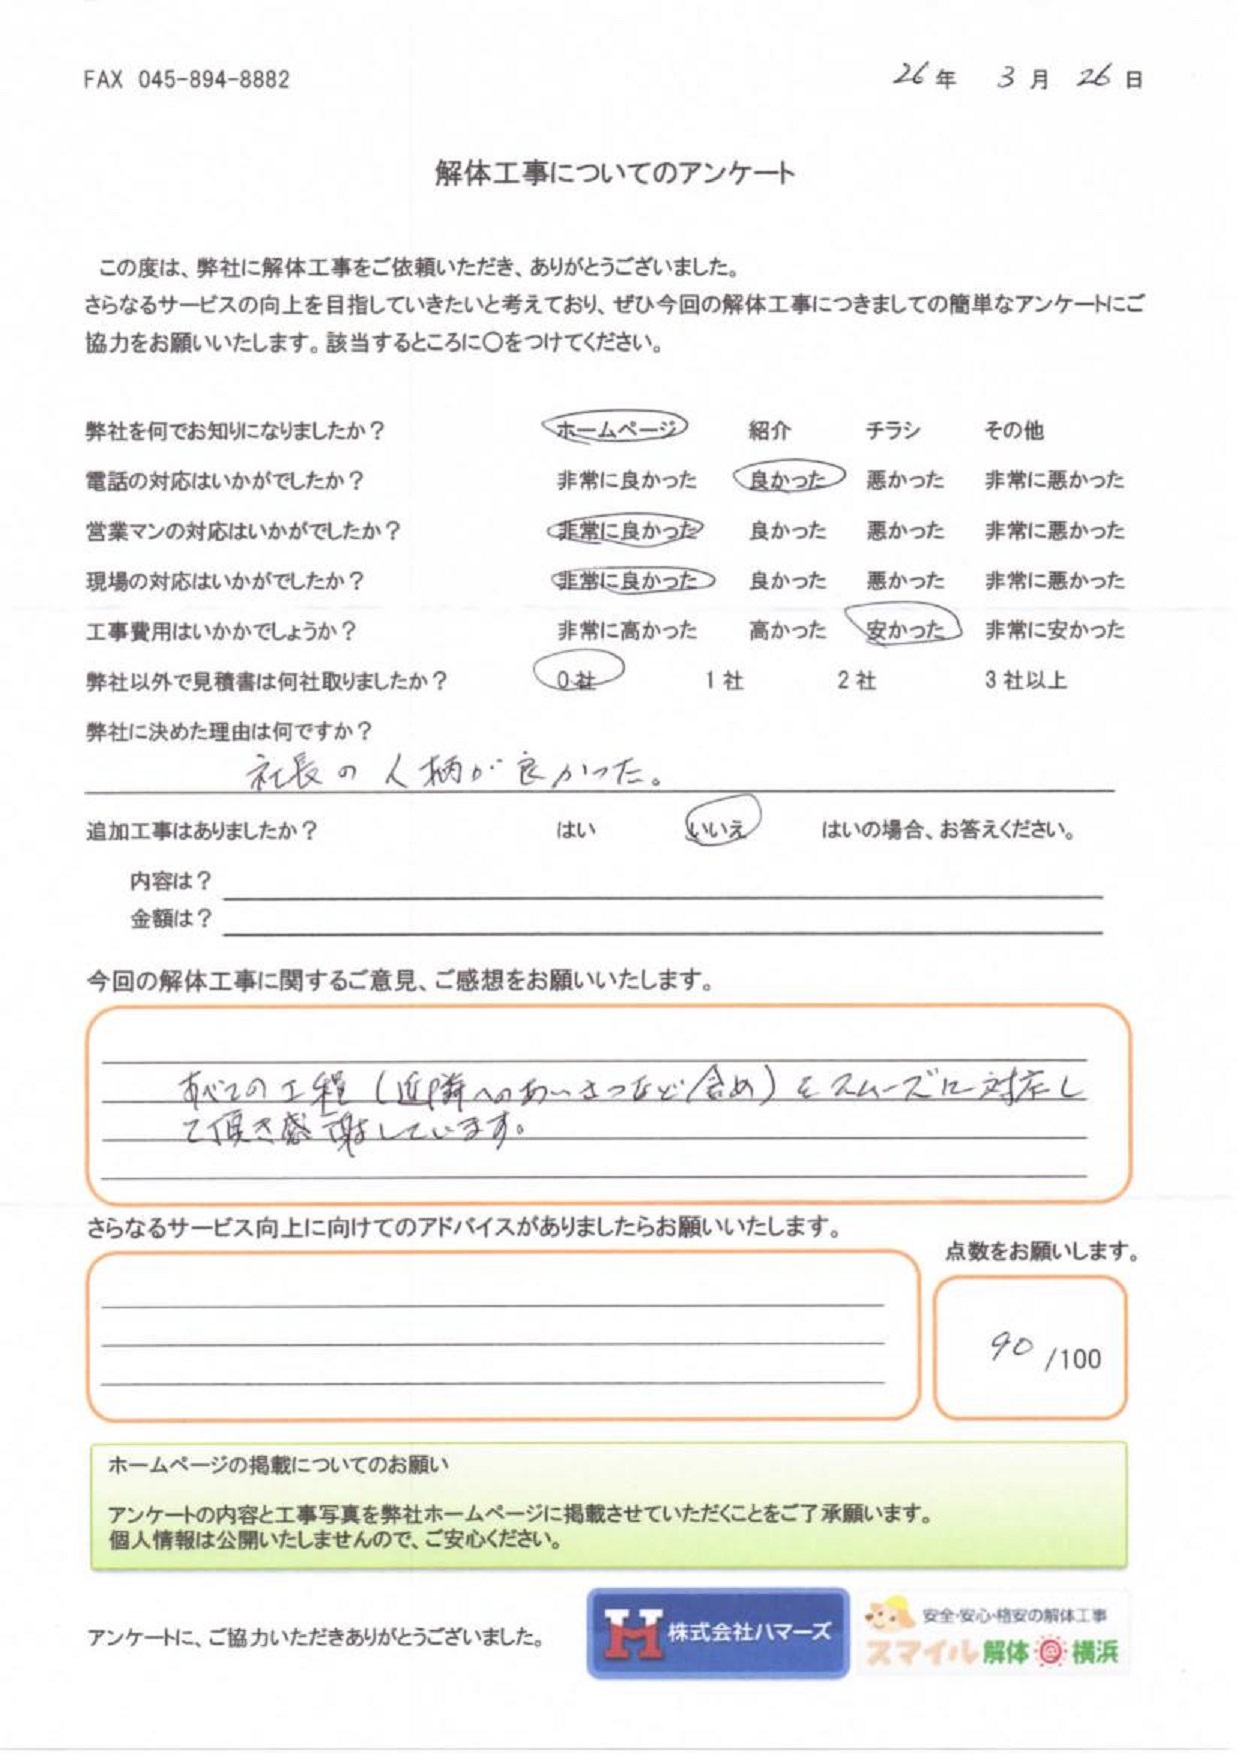 FAX 045-894-8882
26年 3月 26日
解体工事についてのアンケート
この度は、弊社に解体工事をご依頼いただき、ありがとうございました。
さらなるサービスの向上を目指していきたいと考えており、ぜひ今回の解体工事につきましての簡単なアンケートにご
協力をお願いいたします。該当するところに○をつけてください。
弊社を何でお知りになりましたか？ ホームページ 紹介 チラシ その他
電話の対応はいかがでしたか？ 非常に良かった 良かった 悪かった 非常に悪かった
営業マンの対応はいかがでしたか？ 非常に良かった 良かった 悪かった 非常に悪かった
現場の対応はいかがでしたか？ 非常に良かった 良かった 悪かった 非常に悪かった
工事費用はいかかでしょうか？ 非常に高かった 高かった 安かった 非常に安かった
弊社以外で見積書は何社取りましたか？ 0社 1社 2社 3社以上
弊社に決めた理由は何ですか？
社長の人柄が良かった。
追加工事はありましたか？ はい いいえ はいの場合、お答えください。
内容は？
金額は？
今回の解体工事に関するご意見、ご感想をお願いいたします。
すべての工程(近隣へのあいさつなど含め)をスムーズに対応し
て頂き感謝しています。
さらなるサービス向上に向けてのアドバイスがありましたらお願いいたします。
点数をお願いします。
90/100
ホームページの掲載についてのお願い
アンケートの内容と工事写真を弊社ホームページに掲載させていただくことをご了承願います。
個人情報は公開いたしませんので、ご安心ください。
アンケートに、ご協力いただきありがとうございました。
H 株式会社ハマーズ
安全・安心・格安の解体工事
スマイル解体@横浜